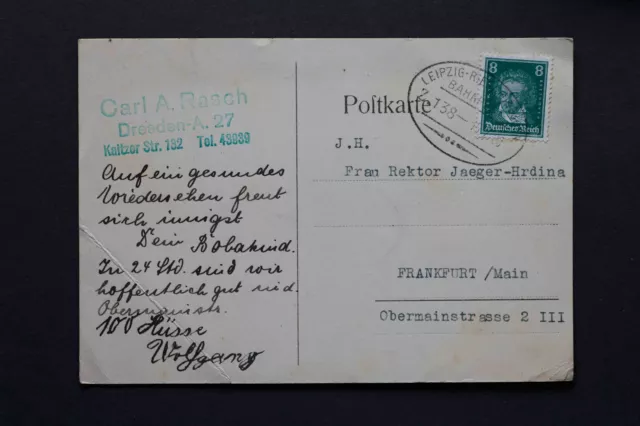 Carl A. Rasch
Dresden-A. 27
Kaitzer Str. 132 Tel. 43839
Auf ein gesundes
Wiedersehen freut
sich innigst
Dein Bobakind.
In 24 Std. sind wir
hoffentlich gut i. d.
Obermainstr.
100 Küsse
Wolfgang
Postkarte
LEIPZIG-
BAHNPOST
Z. 138
8 8
Deutsches Reich
J.H.
Frau Rektor Jaeger-Hrdina
FRANKFURT /Main
Obermainstrasse 2 III